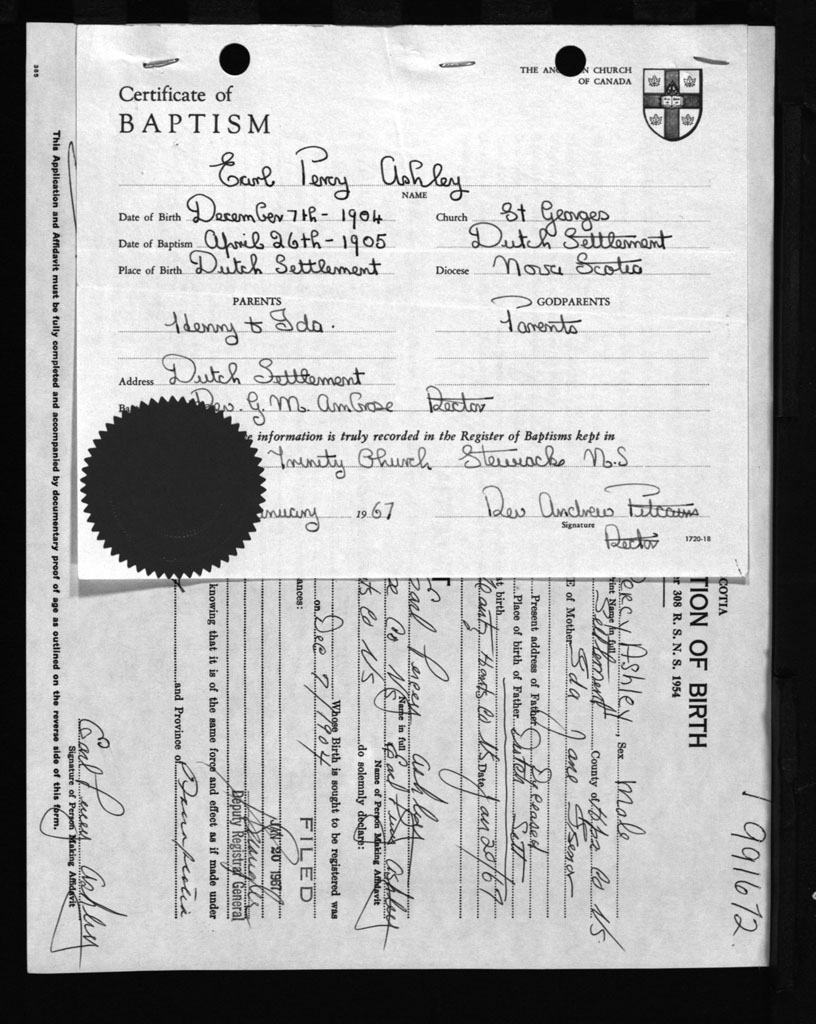 THE CHURCH
OF CANADA
Certificate of
BAPTISM
Earl Percy Ashley
NAME
Date of Birth December 7th - 1904
Church St Georges
Date of Baptism April 26th - 1905
Dutch Settlement
Place of Birth Dutch Settlement
Diocese Nova Scotia
PARENTS
GODPARENTS
Henry & Ida.
Parents
Address Dutch Settlement
Rev. G. M. Ambrose Rector
information is truly recorded in the Register of Baptisms kept in
Trinity Church Stewiacke N.S
1967
Rev Andrew
Signature
Rector
1720-18
385
This Application and Affidavit must be fully completed and accompanied by documentary proof of age as outlined on the reverse side of this form.
COTIA
TION OF BIRTH
308 R. S. N. S. 1954
1991672
Percy Ashley, Sex Male
Print Name in full
Settlement County of Co NS
of Mother Ida Jane
Present address of Father Deceased
Place of birth of Father Dutch Sett
birth
Hants Co NS Date Jan 20/67
Earl Percy Ashley
Name in full
Co NS Earl Percy Ashley
Name of Person Making Affidavit
Co NS do solemnly declare:
Whose Birth is sought to be registered was
on Dec 7/1904
FILED
JAN 20 1967
Deputy Registrar General
knowing that it is of the same force and effect as if made under
and Province of
Earl Percy Ashley
Signature of Person Making Affidavit